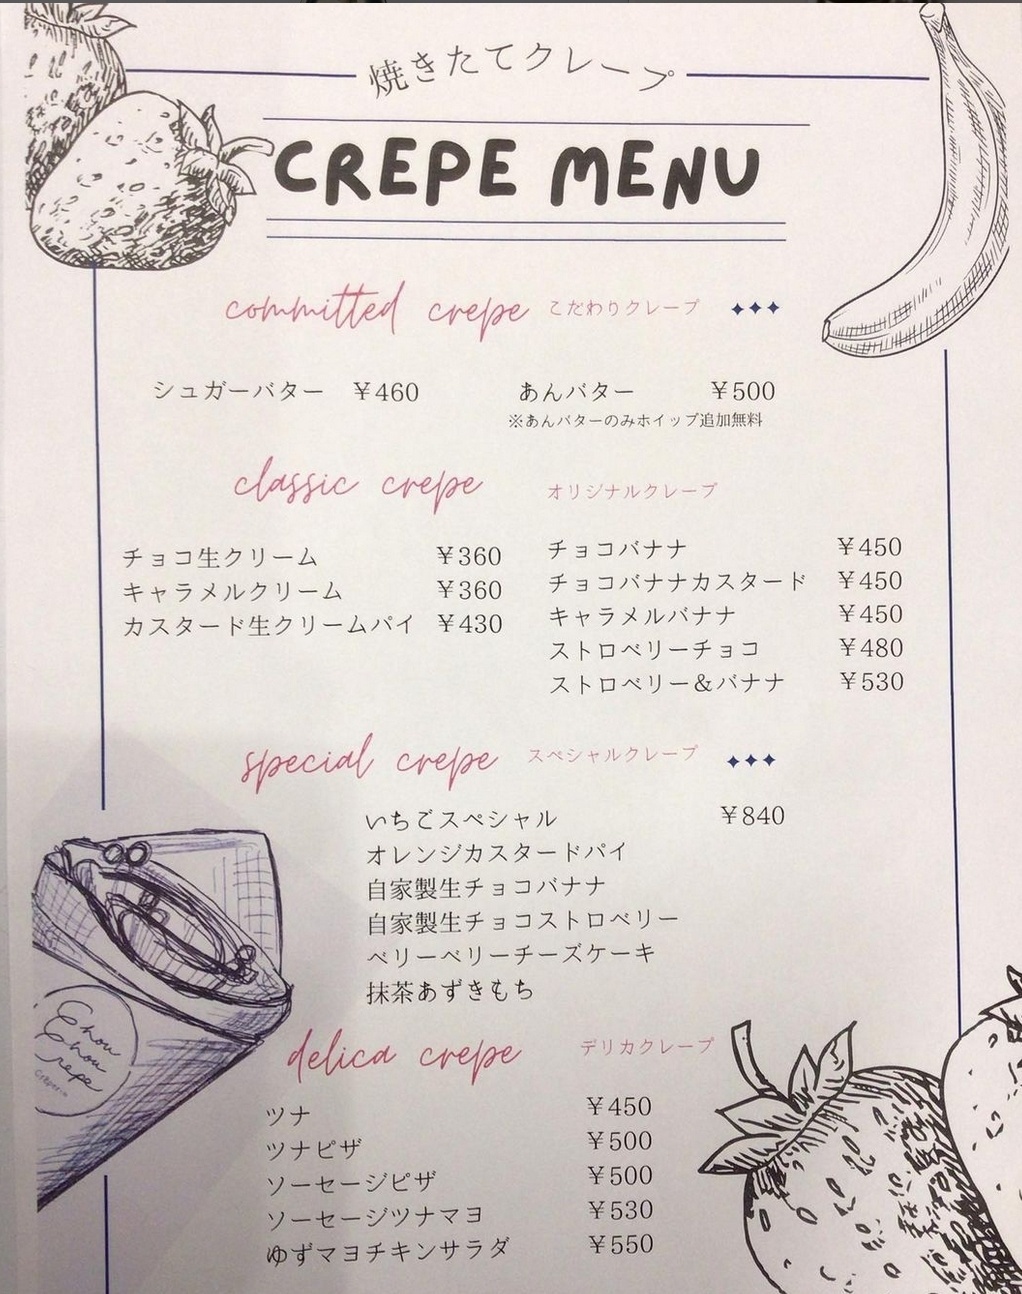 焼きたてクレープ
CREPE MENU
committed crepe こだわりクレープ
シュガーバター ￥460 あんバター ￥500
※あんバターのみホイップ追加無料
classic crepe オリジナルクレープ
チョコ生クリーム ￥360
キャラメルクリーム ￥360
カスタード生クリームパイ ￥430
チョコバナナ ￥450
チョコバナナカスタード ￥450
キャラメルバナナ ￥450
ストロベリーチョコ ￥480
ストロベリー＆バナナ ￥530
special crepe スペシャルクレープ
いちごスペシャル ￥840
オレンジカスタードパイ
自家製生チョコバナナ
自家製生チョコストロベリー
ベリーベリーチーズケーキ
抹茶あずきもち
delica crepe デリカクレープ
ツナ ￥450
ツナピザ ￥500
ソーセージピザ ￥500
ソーセージツナマヨ ￥530
ゆずマヨチキンサラダ ￥550
Chou
Chou
crepe